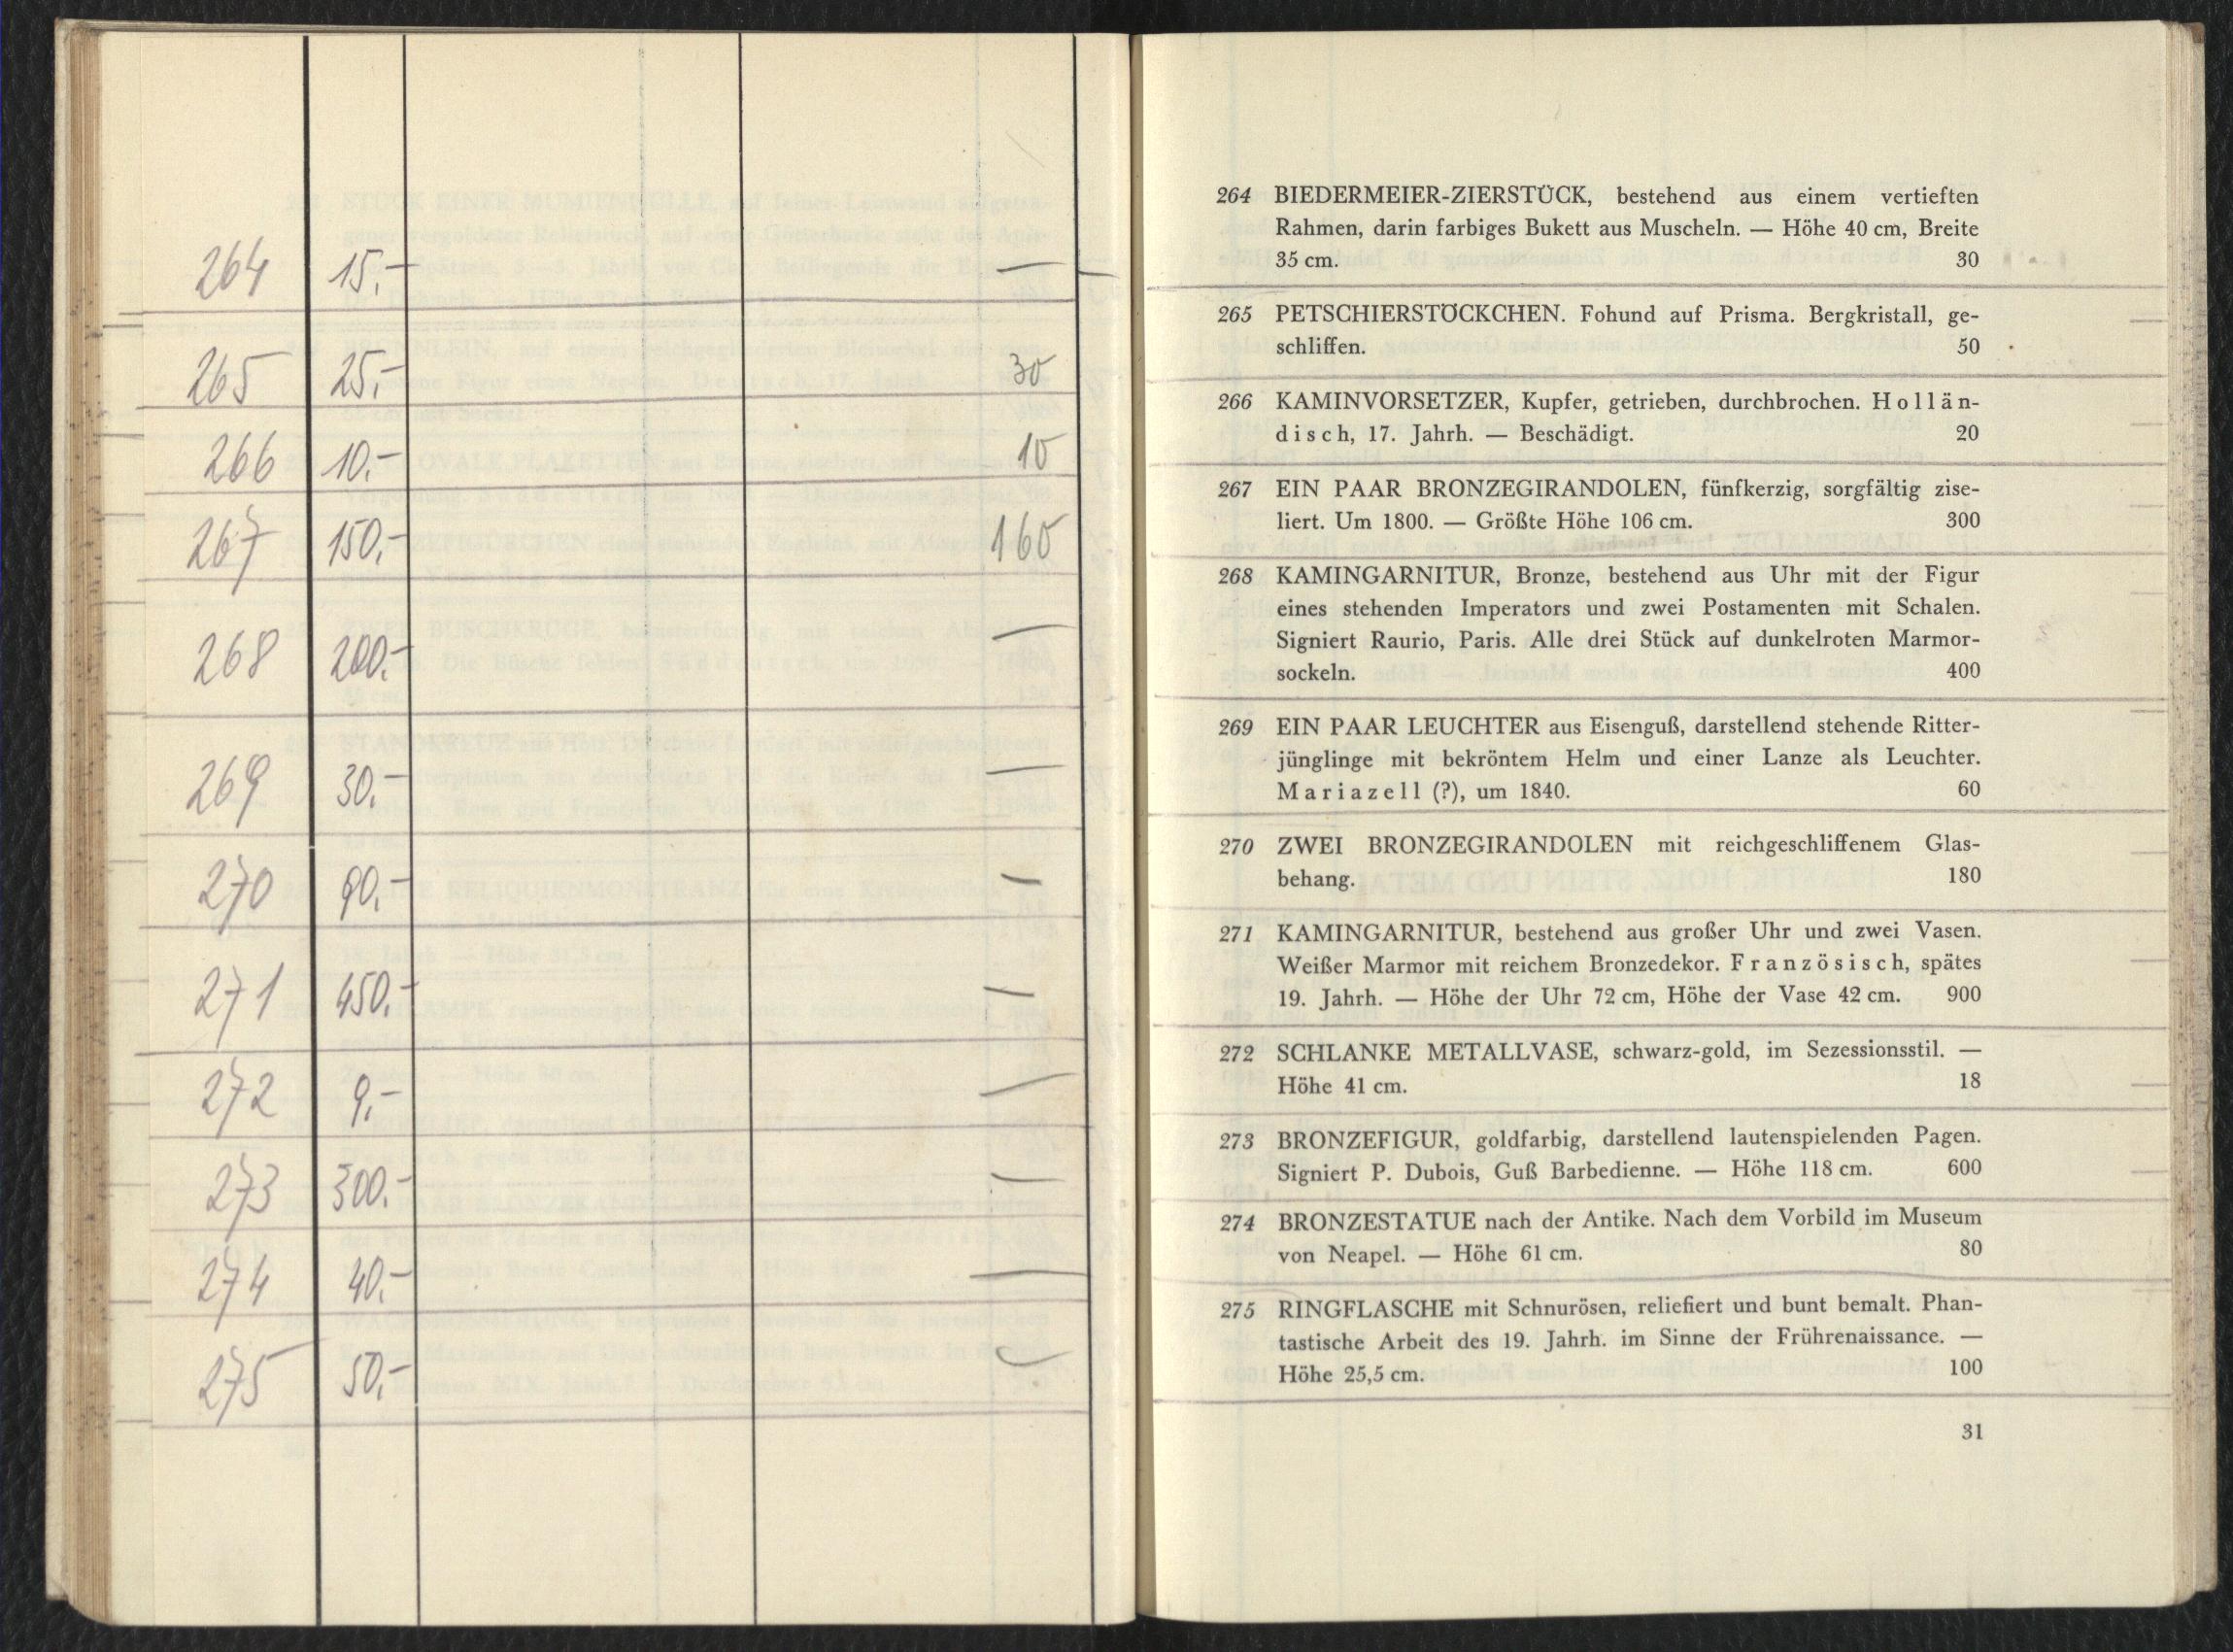 264 15,- —
265 25,- 30
266 10,- 10
267 150,- 160
268 200,- —
269 30,- —
270 90,- —
271 450,- —
272 9,- —
273 300,- —
274 40,- —
275 50,-
264 BIEDERMEIER-ZIERSTÜCK, bestehend aus einem vertieften
Rahmen, darin farbiges Bukett aus Muscheln. — Höhe 40 cm, Breite
35 cm. 30
265 PETSCHIERSTÖCKCHEN. Fohund auf Prisma. Bergkristall, ge-
schliffen. 50
266 KAMINVORSETZER, Kupfer, getrieben, durchbrochen. Hollän-
disch, 17. Jahrh. — Beschädigt. 20
267 EIN PAAR BRONZEGIRANDOLEN, fünfkerzig, sorgfältig zise-
liert. Um 1800. — Größte Höhe 106 cm. 300
268 KAMINGARNITUR, Bronze, bestehend aus Uhr mit der Figur
eines stehenden Imperators und zwei Postamenten mit Schalen.
Signiert Raurio, Paris. Alle drei Stück auf dunkelroten Marmor-
sockeln. 400
269 EIN PAAR LEUCHTER aus Eisenguß, darstellend stehende Ritter-
jünglinge mit bekröntem Helm und einer Lanze als Leuchter.
Mariazell (?), um 1840. 60
270 ZWEI BRONZEGIRANDOLEN mit reichgeschliffenem Glas-
behang. 180
271 KAMINGARNITUR, bestehend aus großer Uhr und zwei Vasen.
Weißer Marmor mit reichem Bronzedekor. Französisch, spätes
19. Jahrh. — Höhe der Uhr 72 cm, Höhe der Vase 42 cm. 900
272 SCHLANKE METALLVASE, schwarz-gold, im Sezessionsstil. —
Höhe 41 cm. 18
273 BRONZEFIGUR, goldfarbig, darstellend lautenspielenden Pagen.
Signiert P. Dubois, Guß Barbedienne. — Höhe 118 cm. 600
274 BRONZESTATUE nach der Antike. Nach dem Vorbild im Museum
von Neapel. — Höhe 61 cm. 80
275 RINGFLASCHE mit Schnurösen, reliefiert und bunt bemalt. Phan-
tastische Arbeit des 19. Jahrh. im Sinne der Frührenaissance. —
Höhe 25,5 cm. 100
31